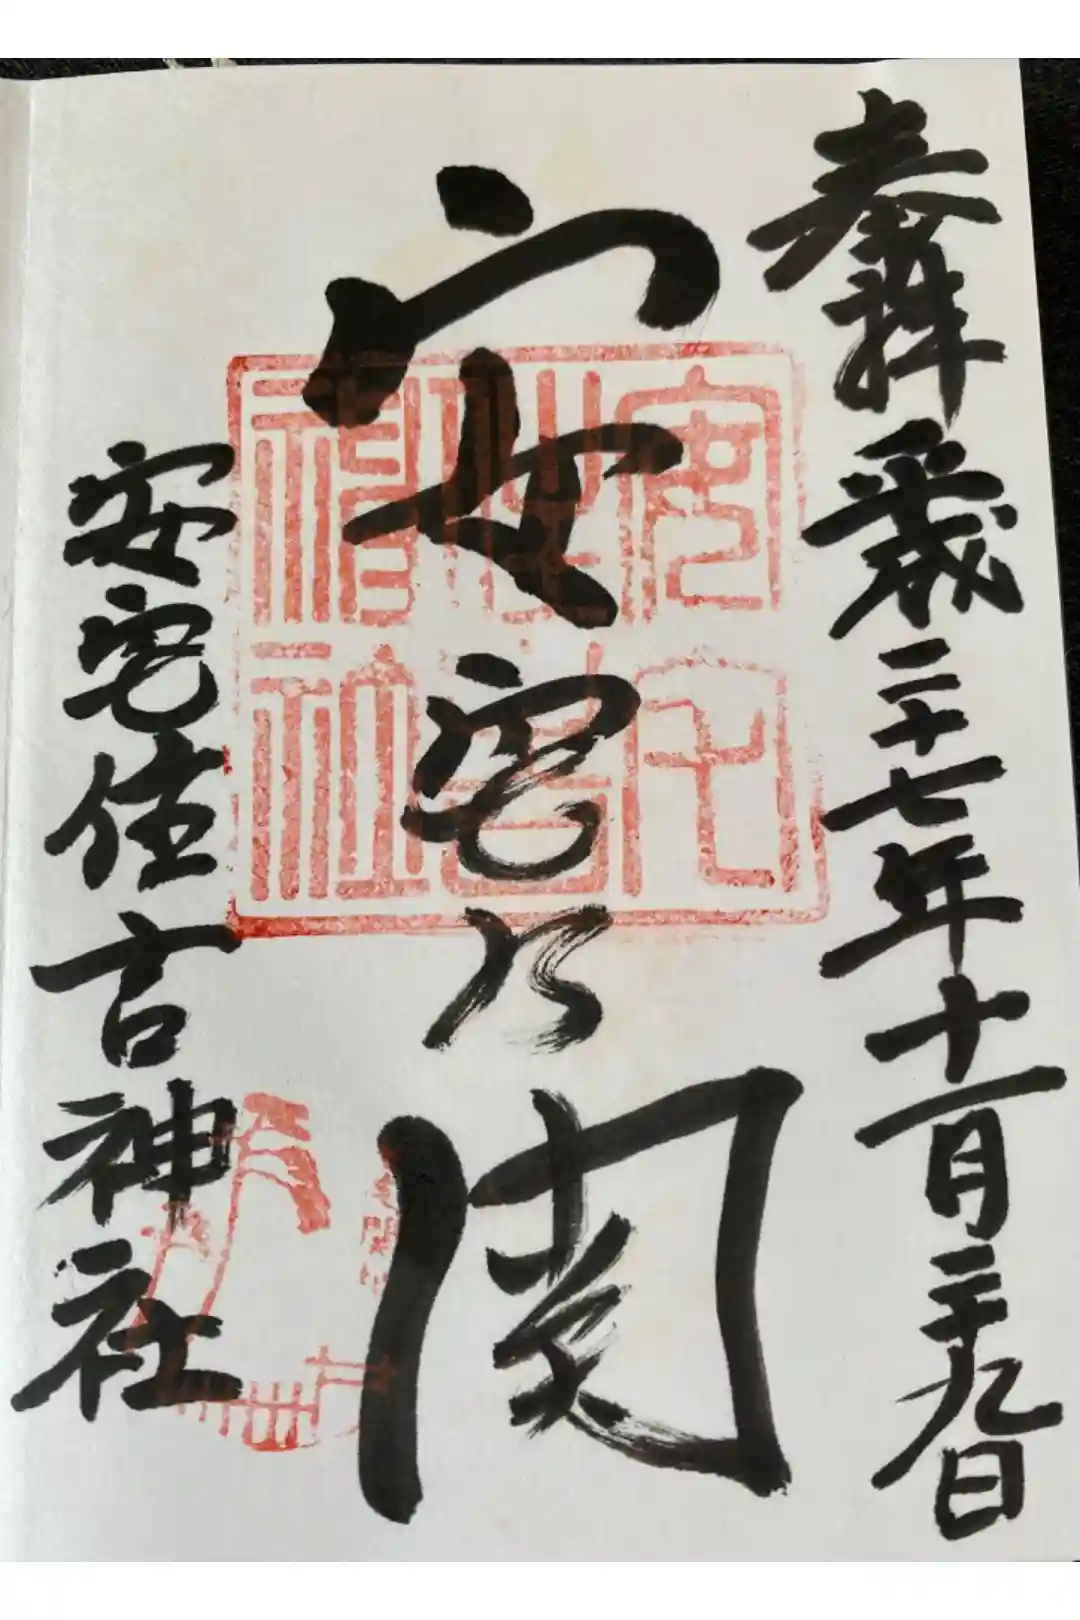 奉拝 平成二十七年十一月二十九日
安宅乃関
安宅住吉神社
安宅
住吉
神社